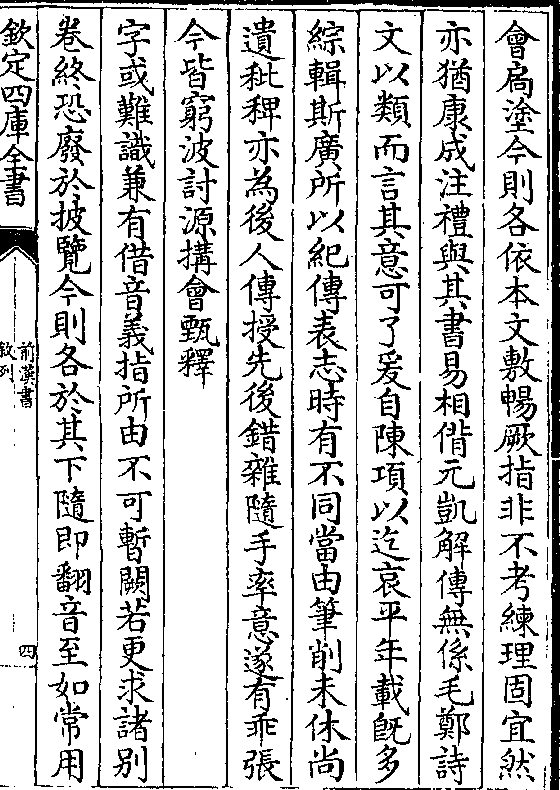 會扄塗今則各依本文敷暢厥指非不考練理固宜然
亦猶康成注禮與其書易相偕元凱解傳無係毛鄭詩
文以類而言其意可了爰自陳項以迄哀平年載既多
綜輯斯廣所以紀傳表志時有不同當由筆削未休尚
遺秕稗亦為後人傳授先後錯雜隨手率意遂有乖張
今皆窮波討源搆會甄釋
字或難識兼有借音義指所由不可暫闕若更求諸別
卷終恐廢於披覽今則各於其下隨即翻音至如常用
欽定四庫全書
前漢書
敘列
四